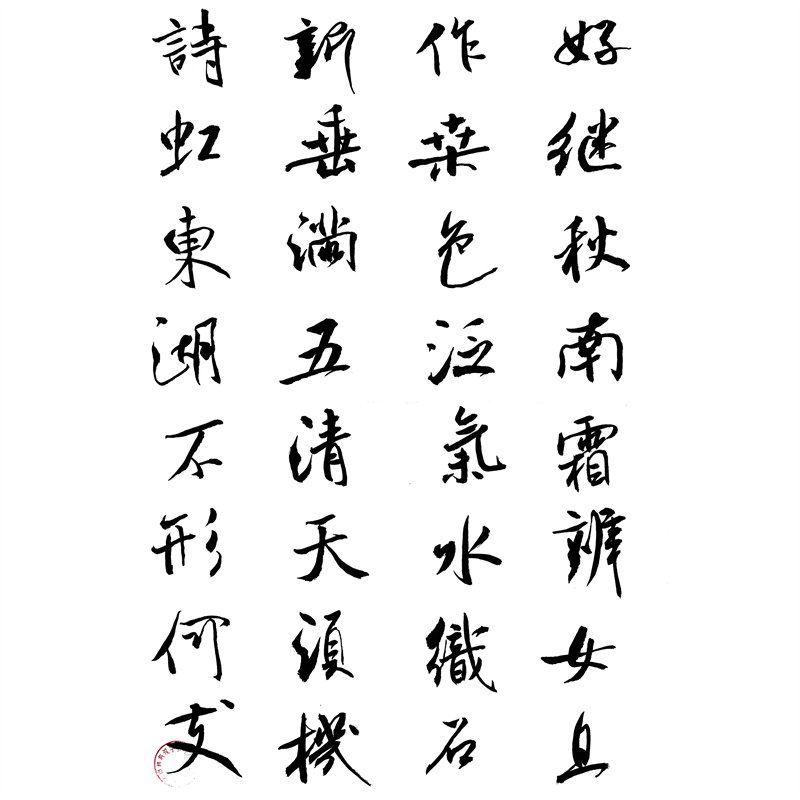 好作新詩
继桒垂虹
秋色滿東
南泛五湖
霜氣清不
辨水天形
何須織女
支機石且